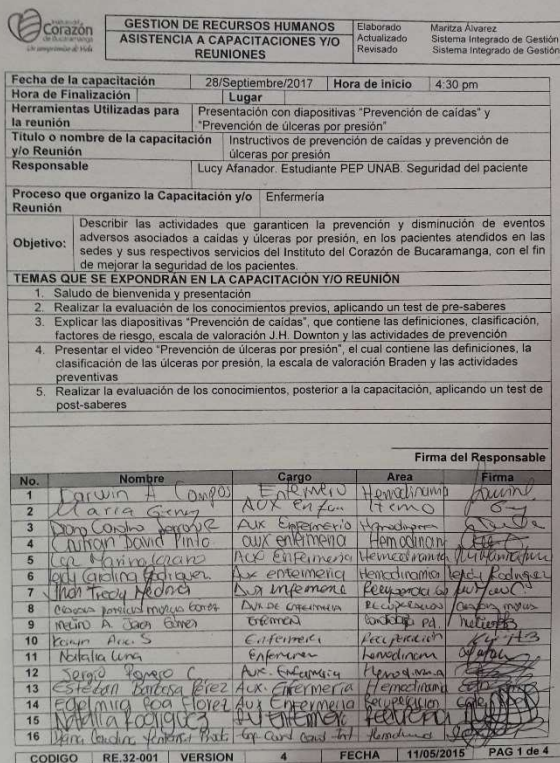 Instituto del
Corazón
de Bucaramanga
Un compromiso de Vida
GESTION DE RECURSOS HUMANOS
ASISTENCIA A CAPACITACIONES Y/O
REUNIONES
Elaborado Maritza Álvarez
Actualizado Sistema Integrado de Gestión
Revisado Sistema Integrado de Gestión
Fecha de la capacitación 28/Septiembre/2017 Hora de inicio 4:30 pm
Hora de Finalización Lugar
Herramientas Utilizadas para la reunión Presentación con diapositivas "Prevención de caídas" y
"Prevención de úlceras por presión"
Título o nombre de la capacitación y/o Reunión Instructivos de prevención de caídas y prevención de
úlceras por presión
Responsable Lucy Afanador. Estudiante PEP UNAB. Seguridad del paciente
Proceso que organizo la Capacitación y/o Reunión Enfermería
Objetivo: Describir las actividades que garanticen la prevención y disminución de eventos
adversos asociados a caídas y úlceras por presión, en los pacientes atendidos en las
sedes y sus respectivos servicios del Instituto del Corazón de Bucaramanga, con el fin
de mejorar la seguridad de los pacientes.
TEMAS QUE SE EXPONDRÁN EN LA CAPACITACIÓN Y/O REUNIÓN
1. Saludo de bienvenida y presentación
2. Realizar la evaluación de los conocimientos previos, aplicando un test de pre-saberes
3. Explicar las diapositivas "Prevención de caídas", que contiene las definiciones, clasificación,
factores de riesgo, escala de valoración J.H. Downton y las actividades de prevención
4. Presentar el video "Prevención de úlceras por presión", el cual contiene las definiciones, la
clasificación de las úlceras por presión, la escala de valoración Braden y las actividades
preventivas
5. Realizar la evaluación de los conocimientos, posterior a la capacitación, aplicando un test de
post-saberes
Firma del Responsable
No. Nombre Cargo Area Firma
1 Darwin A Campos Enfermero Hemodinamia
2 Maria Aux Enfer Hemo
3 Carolina Aux Enfermeria Hemodinamia
4 David Pinto aux enfermeria Hemodinam
5 Marina Lozano Aux Enfermeria Hemodinamia
6 Leidy Carolina Rodriguez Aux enfermeria Hemodinamia Leidy Rodriguez
7 Jhon Fredy Medina Aux enfermeria Recuperacion
8 Aux de enfermeria Recuperacion
9 Enfermera
10 Karen Enfermera Recuperacion
11 Natalia Luna Enfermera Hemodinam
12 Sergio Romero C Aux. Enfermeria Hemodinamia
13 Esteban Barbosa Pérez Aux. Enfermería Hemodinamia
14 Edelmira Roa Florez Aux Enfermeria Recuperacion
15 Natalia Rodriguez
16 Carolina Hemodinamia
CODIGO RE.32-001 VERSION 4 FECHA 11/05/2015 PAG 1 de 4